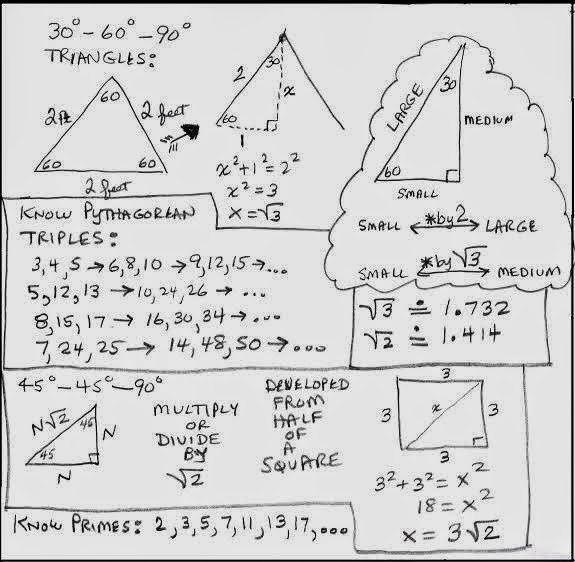 30° - 60° - 90°
TRIANGLES:
60
2 ft
2 feet
60
60
2 feet
30
2
x
60
1
x² + 1² = 2²
x² = 3
x = √3
30
LARGE
MEDIUM
60
SMALL
SMALL *by 2 LARGE
SMALL *by √3 MEDIUM
√3 ≐ 1.732
√2 ≐ 1.414
KNOW PYTHAGOREAN
TRIPLES:
3, 4, 5 → 6, 8, 10 → 9, 12, 15 → ...
5, 12, 13 → 10, 24, 26 → ...
8, 15, 17 → 16, 30, 34 → ...
7, 24, 25 → 14, 48, 50 → ...
45° - 45° - 90°
N√2
45
N
45
N
MULTIPLY
OR
DIVIDE
BY
√2
DEVELOPED
FROM
HALF
OF
A
SQUARE
3
3
x
3
3
3² + 3² = x²
18 = x²
x = 3√2
KNOW PRIMES: 2, 3, 5, 7, 11, 13, 17, ...